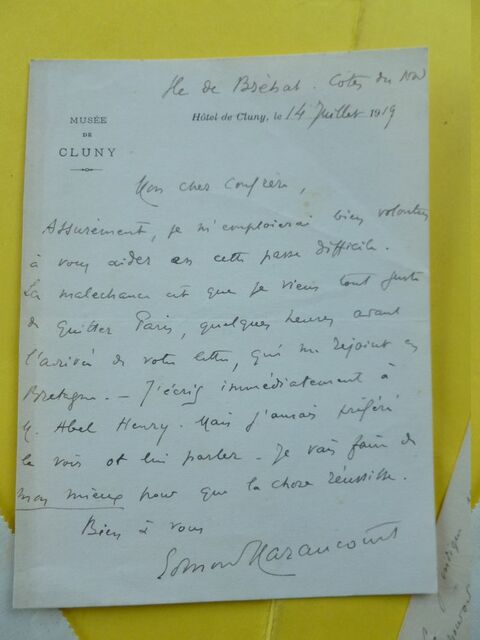 Ile de Bréhat. Côtes du Nord
MUSÉE
DE
CLUNY
Hôtel de Cluny, le 14 Juillet 1919
Mon cher Confrère,
Assurément, je m'emploierai bien volontiers
à vous aider en cette passe difficile.
La malechance est que je viens tout juste
de quitter Paris, quelques heures avant
l'arrivée de votre lettre, qui me rejoint en
Bretagne. — J'écris immédiatement à
M. Abel Henry. Mais j'aurais préféré
le voir et lui parler. Je vais faire de
mon mieux pour que la chose réussisse.
Bien à vous
Edmond Haraucourt